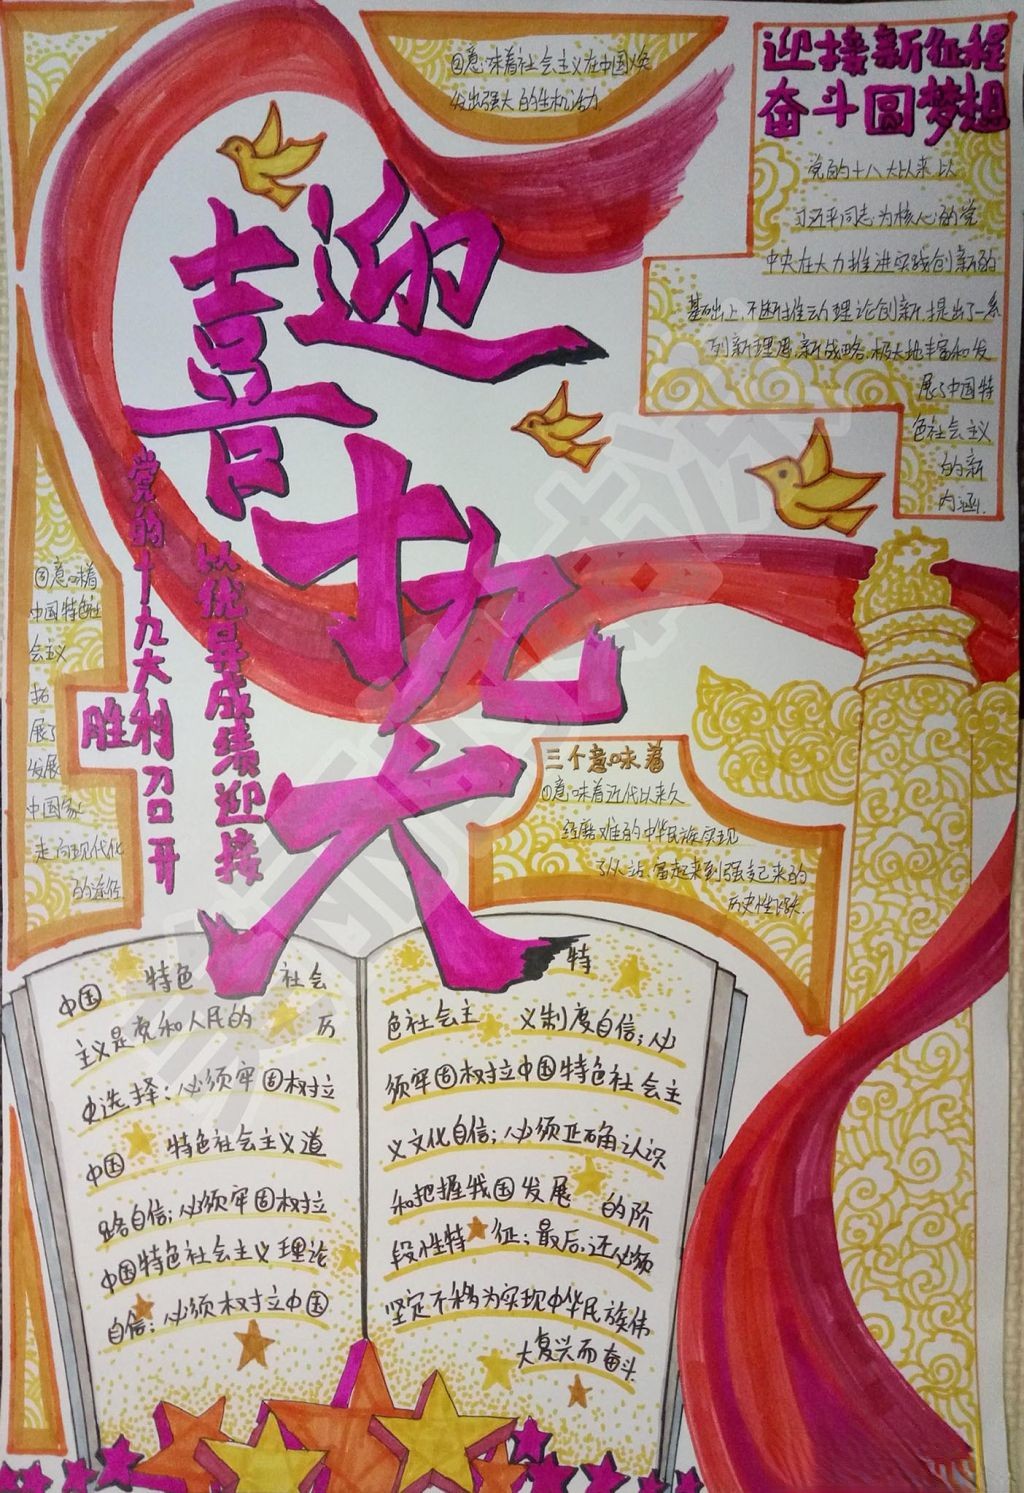 喜迎
十九大
党的十九大胜利召开
以优异成绩迎接
迎接新征程
奋斗圆梦想
党的十八大以来以
习近平同志为核心的党
中央在大力推进实践创新的
基础上,不断推动理论创新,提出了一系
列新理念,新战略,极大地丰富和发
展了中国特
色社会主义
的新
内涵.
三个意味着
①意味着近代以来久
经磨难的中华民族实现
了从站、富起来到强起来的
历史性飞跃.
②意味着社会主义在中国焕
发出强大的生机活力
③意味着
中国特色社
会主义
拓
展了
发展
中国家
走向现代化
的途径
中国 特色 社会
主义是党和人民的 历
史选择;必须牢固树立
中国 特色社会主义道
路自信;必须牢固树立
中国特色社会主义理论
自信;必须树立中国
特
色社会主 义制度自信;必
须牢固树立中国特色社会主
义文化自信;必须正确认识
和把握我国发展 的阶
段性特 征;最后,还必须
坚定不移为实现中华民族伟
大复兴而奋斗.